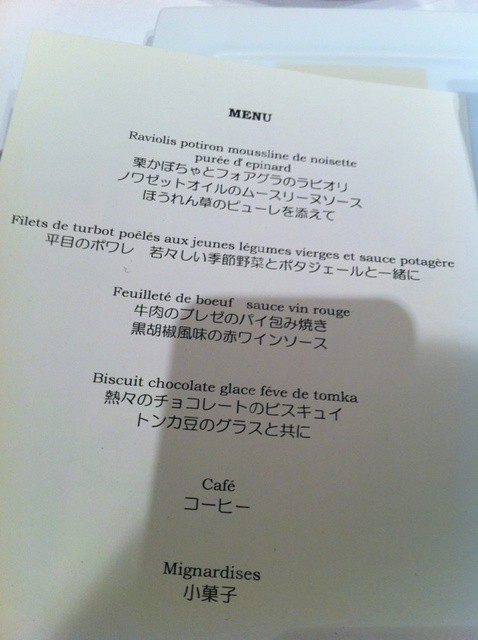 MENU
Raviolis potiron moussline de noisette
purée d'epinard
栗かぼちゃとフォアグラのラビオリ
ノワゼットオイルのムースリーヌソース
ほうれん草のピューレを添えて
Filets de turbot poêlés aux jeunes légumes vierges et sauce potagère
平目のポワレ　若々しい季節野菜とポタジェールと一緒に
Feuilleté de boeuf sauce vin rouge
牛肉のブレゼのパイ包み焼き
黒胡椒風味の赤ワインソース
Biscuit chocolate glace féve de tomka
熱々のチョコレートのビスキュイ
トンカ豆のグラスと共に
Café
コーヒー
Mignardises
小菓子